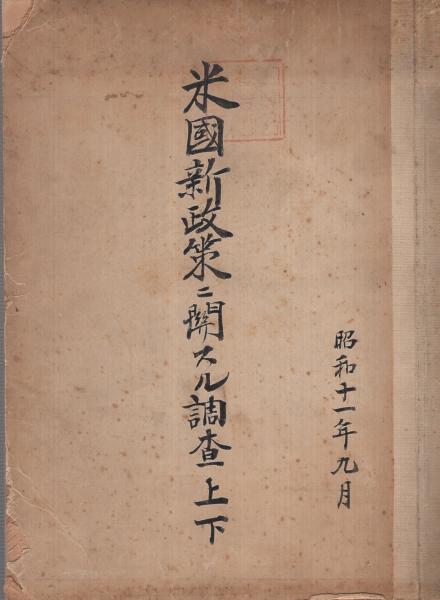 昭和十一年九月
米國新政策ニ關スル調査上下